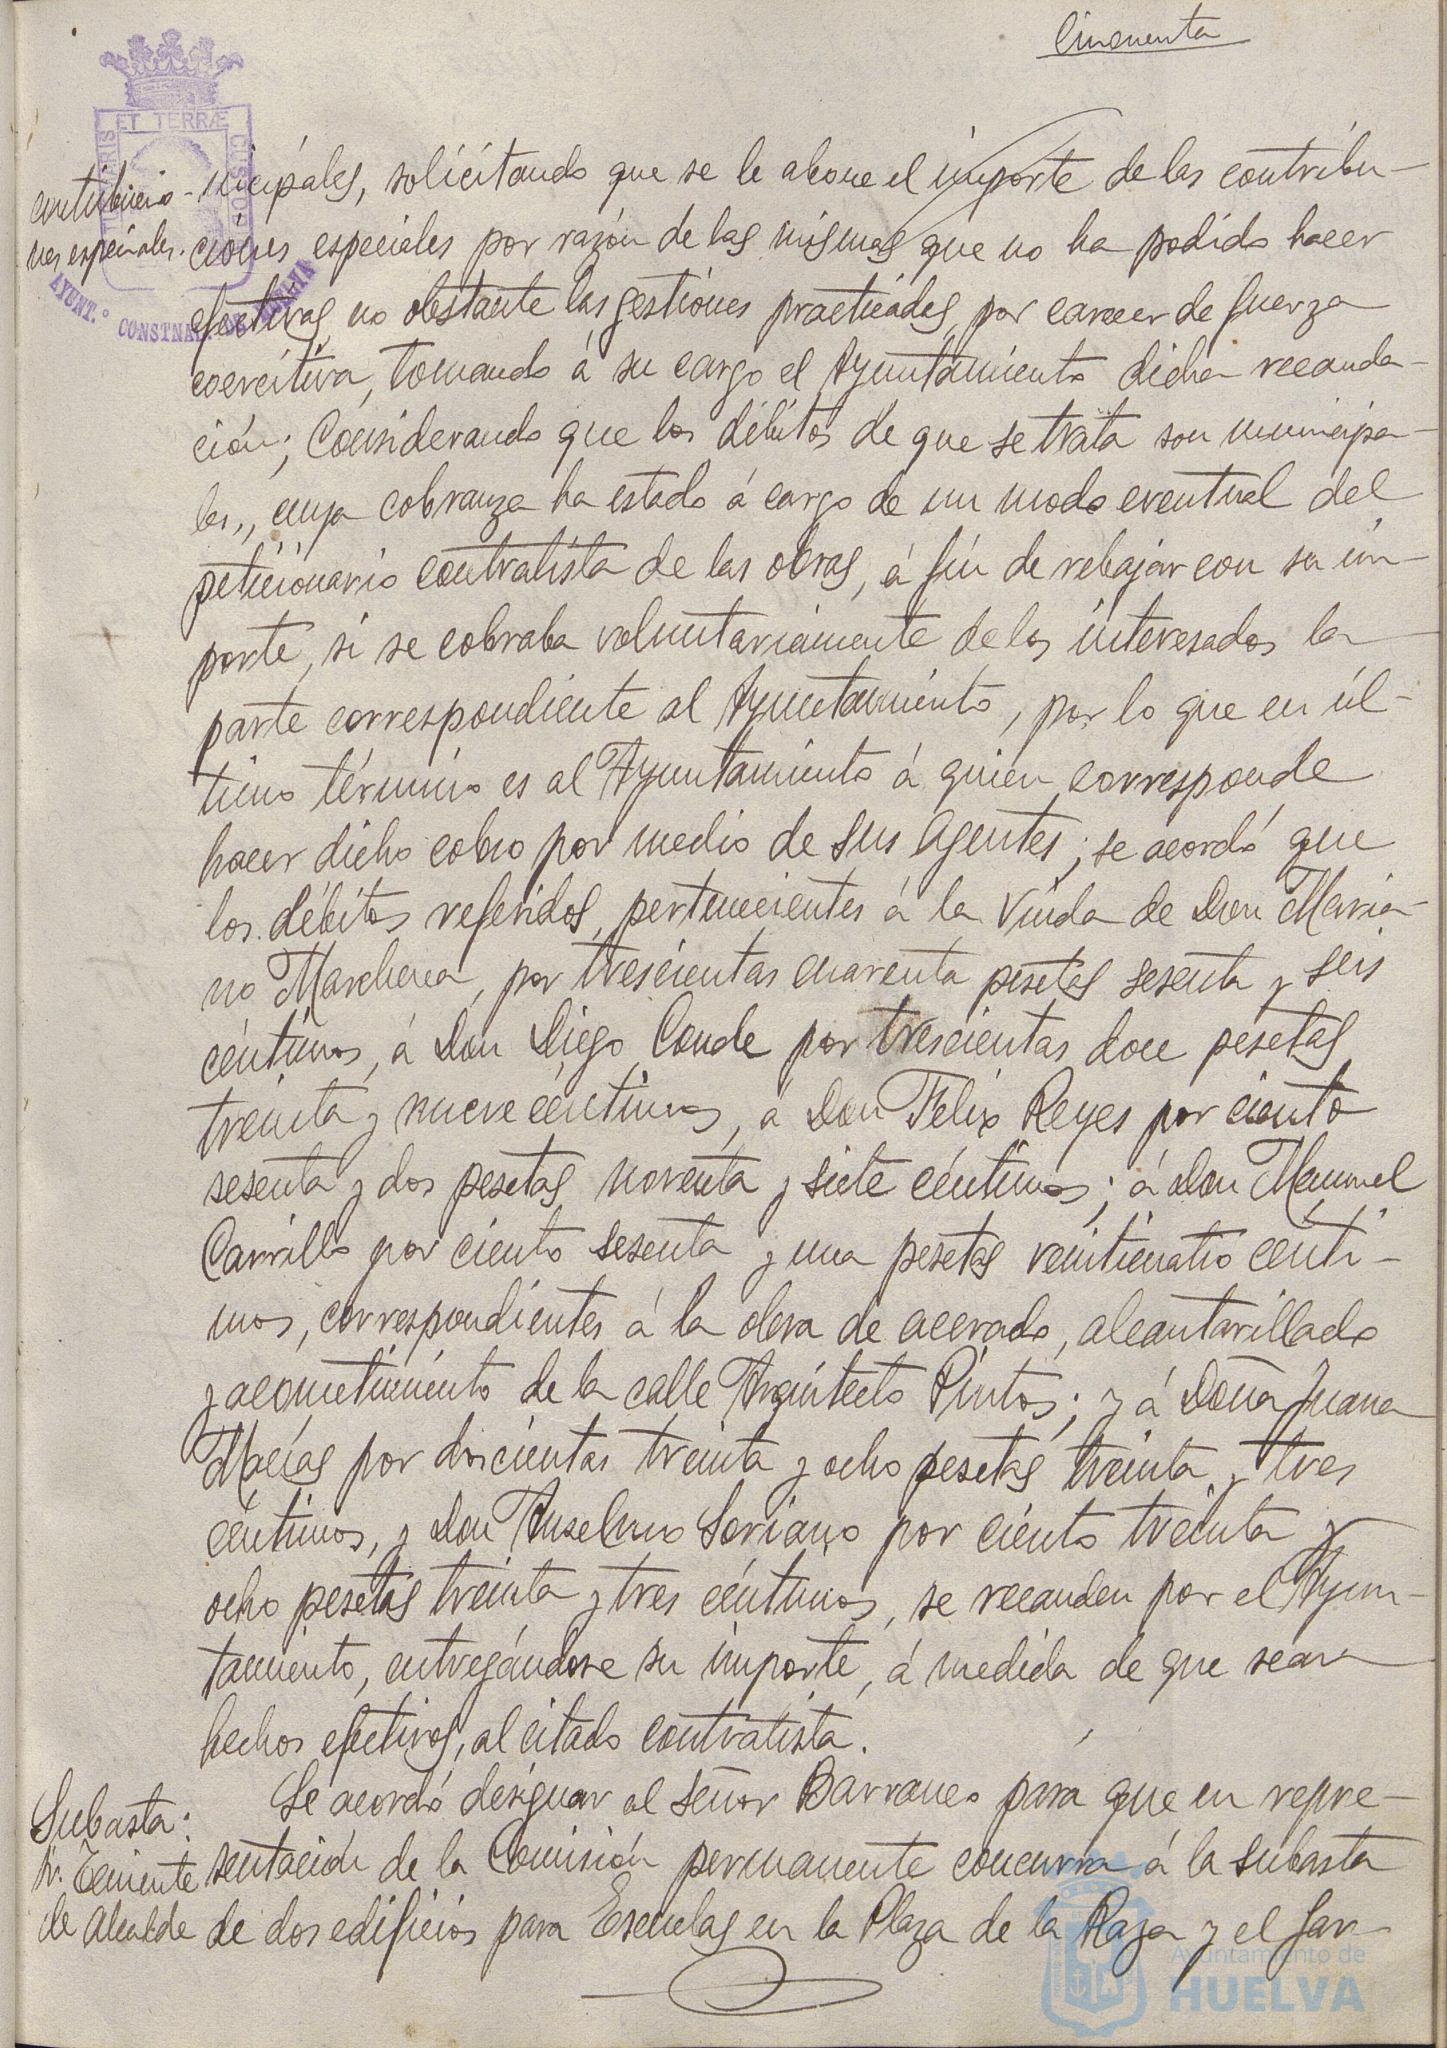 Cincuenta
ET TERRÆ
contribucio-
nes especiales.
AYUNT.º CONSTNAL. DE HUELVA
nicipales, solicitando que se le abone el importe de las contribu-
ciones especiales por razón de las mismas que no ha podido hacer
efectivas no obstante las gestiones practicadas, por carecer de fuerza
coercitiva, tomando á su cargo el Ayuntamiento dicha recauda-
ción; Considerando que los débitos de que se trata son municipa-
les, cuya cobranza ha estado á cargo de un modo eventual del
peticionario contratista de las obras, á fin de rebajar con su im-
porte, si se cobraba voluntariamente de los interesados la
parte correspondiente al Ayuntamiento, por lo que en úl-
timo término es al Ayuntamiento á quien corresponde
hacer dicho cobro por medio de sus Agentes; se acordó que
los débitos referidos, pertenecientes á la Viuda de Don Maria-
no Marchena, por trescientas cuarenta pesetas sesenta y seis
céntimos, á Don Diego Conde por trescientas doce pesetas
treinta y nueve céntimos, á Don Felix Reyes por ciento
sesenta y dos pesetas noventa y siete céntimos; á Don Manuel
Carrillo por ciento sesenta y una pesetas veinticuatro cénti-
mos, correspondientes á la obra de acerado, alcantarillado
y acometimiento de la calle Arquitecto Pintos; y á Doña Juana
Macías por doscientas treinta y ocho pesetas treinta y tres
céntimos, y Don Anselmo Soriano por ciento treinta y
ocho pesetas treinta y tres céntimos, se recauden por el Ayun-
tamiento, entregándose su importe, á medida de que sean
hechos efectivos, al citado contratista.
Subasta:
Sr. Teniente
de Alcalde
Se acordó designar al señor Barranco para que en repre-
sentación de la Comisión permanente concurra á la subasta
de dos edificios para Escuelas en la Plaza de la Raza y el San-
Ayuntamiento de
HUELVA